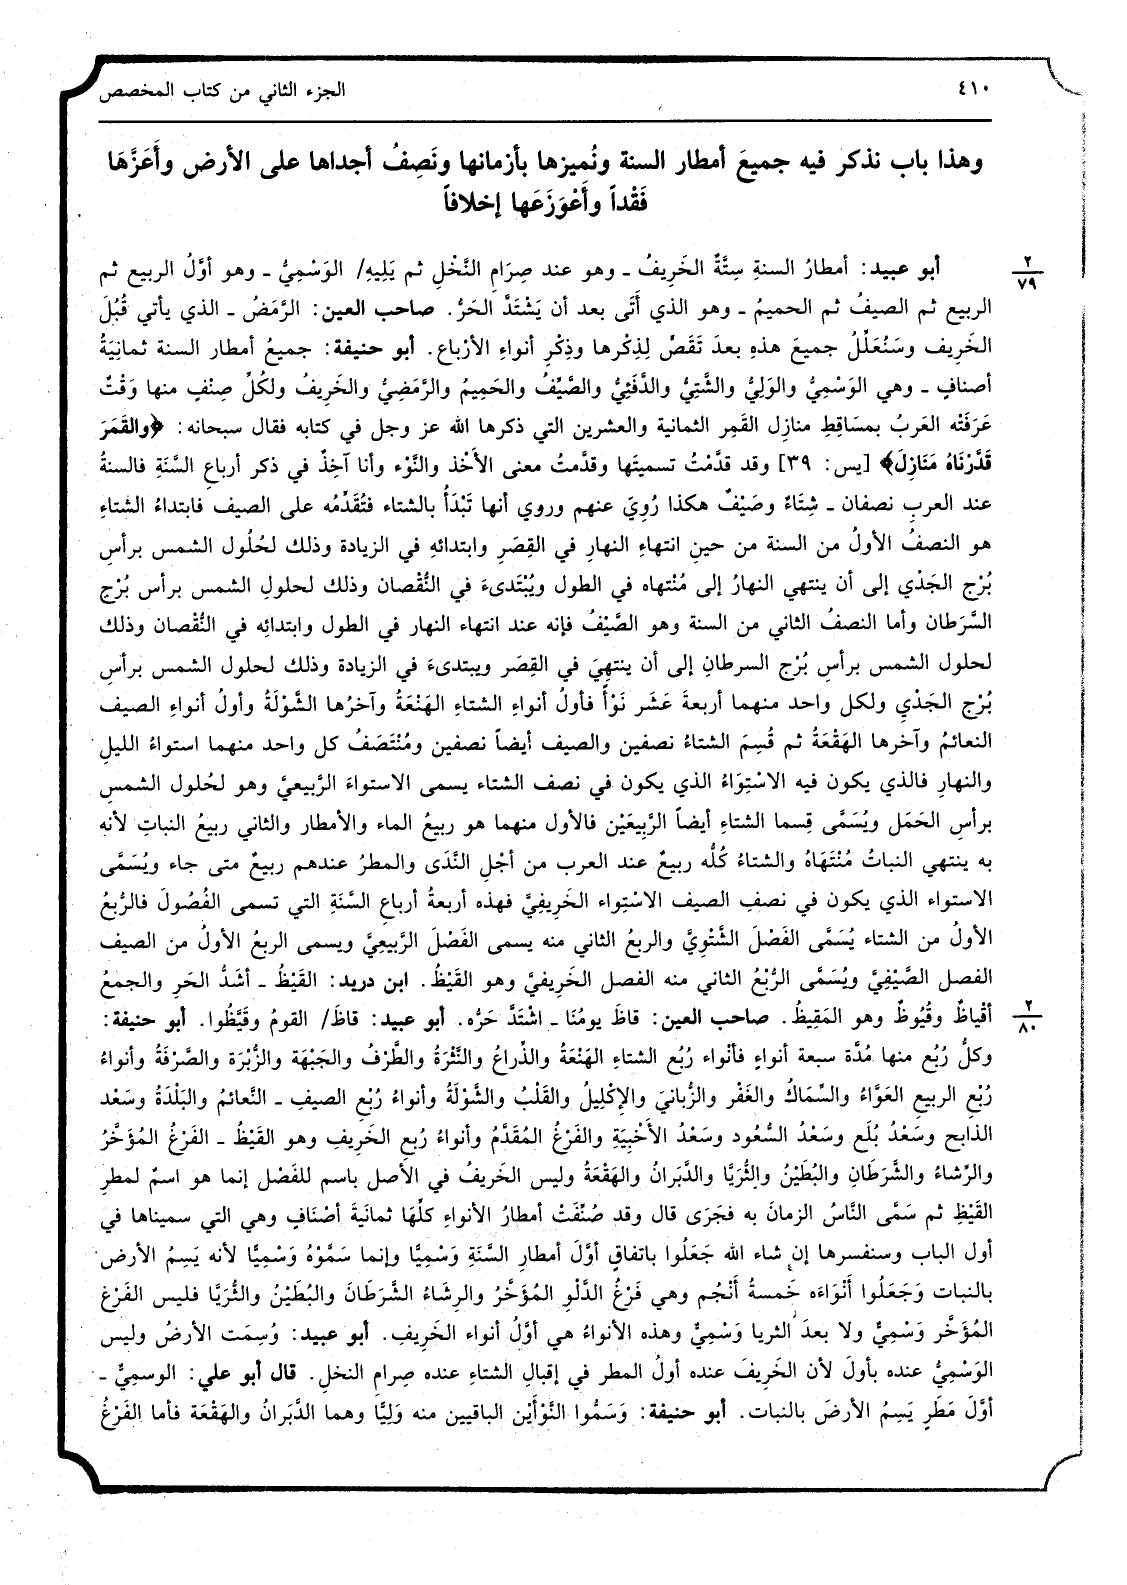 ٤١٠ الجزء الثاني من كتاب المخصص
وهذا باب نذكر فيه جميعَ أمطار السنة ونُميزها بأزمانها ونَصِفُ أجداها على الأرض وأَعَزَّهَا
فَقْداً وأَعْوَزَعَها إخلافاً
٢
٧٩
أبو عبيد: أمطارُ السنةِ سِتَّةٌ الخَرِيفُ ـ وهو عند صِرَامِ النَّخْلِ ثم يَلِيهِ/ الوَسْمِيُّ ـ وهو أوَّلُ الربيع ثم
الربيع ثم الصيفُ ثم الحميمُ ـ وهو الذي أَتَى بعد أن يَشْتَدَّ الحَرُّ. صاحب العين: الرَّمَضُ ـ الذي يأتي قُبُلَ
الخَرِيف وسَنُعَلِّلُ جميعَ هذهِ بعدَ تَقَصٍّ لِذِكْرها وذِكْرِ أنواءِ الأرْباع. أبو حنيفة: جميعُ أمطار السنة ثمانِيَةُ
أصنافٍ ـ وهي الوَسْمِيُّ والوَلِيُّ والشَّتِيُّ والدَّفَئِيُّ والصَّيِّفُ والحَمِيمُ والرَّمَضِيُّ والخَرِيفُ ولكُلِّ صِنْفٍ منها وَقْتٌ
عَرَفَته العَرَبُ بمسَاقِطِ منازِل القَمِر الثمانية والعشرين التي ذكرها الله عز وجل في كتابه فقال سبحانه: ﴿والقَمَرَ
قَدَّرْنَاهُ مَنَازِلَ﴾ [يس: ٣٩] وقد قدَّمْتُ تسميتَها وقدَّمتُ معنى الأَخْذ والنَّوْء وأنا آخِذٌ في ذكر أرباعِ السَّنَةِ فالسنةُ
عند العربِ نصفان ـ شِتَاءٌ وصَيْفٌ هكذا رُوِيَ عنهم وروي أنها تَبْدَأُ بالشتاء فتُقَدِّمُه على الصيف فابتداءُ الشتاءِ
هو النصفُ الأولُ من السنة من حينِ انتهاءِ النهارِ في القِصَرِ وابتدائهِ في الزيادة وذلك لحُلُول الشمس برأسِ
بُرْج الجَدْي إلى أن ينتهي النهارُ إلى مُنْتهاه في الطول ويُبْتَدىءَ في النُّقْصان وذلك لحلولِ الشمس برأس بُرْج
السَّرَطان وأما النصفُ الثاني من السنة وهو الصَّيْفُ فإنه عند انتهاء النهار في الطول وابتدائِه في النُّقْصان وذلك
لحلول الشمس برأسِ بُرْج السرطانِ إلى أن ينتهِيَ في القِصَر ويبتدىءَ في الزيادة وذلك لحلول الشمس برأسِ
بُرْج الجَدْيِ ولكل واحد منهما أربعةَ عَشَر نَوْأً فأولُ أنواءِ الشتاءِ الهَنْعَةُ وآخرُها الشَّوْلَةُ وأول أنواءِ الصيف
النعائمُ وآخرها الهَقْعَةُ ثم قُسِمَ الشتاءُ نصفين والصيف أيضاً نصفين ومُنْتَصَفُ كل واحد منهما استواءُ الليلِ
والنهارِ فالذي يكون فيه الاسْتِوَاءُ الذي يكون في نصف الشتاء يسمى الاستواءَ الرَّبيعيَّ وهو لحُلول الشمسِ
برأسِ الحَمَل ويُسَمَّى قِسما الشتاءِ أيضاً الرَّبِيعَيْن فالأول منهما هو ربيعُ الماء والأمطار والثاني ربيعُ النباتِ لأنه
به ينتهي النباتُ مُنْتَهَاهُ والشتاءُ كُلُّه ربيعٌ عند العرب من أجْلِ النَّدَى والمطرُ عندهم ربيعٌ متى جاء ويُسَمَّى
الاستواء الذي يكون في نصفِ الصيف الاسْتِواء الخَرِيفِيَّ فهذه أربعةُ أرباعِ السَّنَةِ التي تسمى الفُصُولَ فالرُّبعُ
الأولُ من الشتاء يُسَمَّى الفَصْلَ الشَّتْوِيَّ والربعُ الثاني منه يسمى الفَصْلَ الرَّبيعِيَّ ويسمى الربعُ الأولُ من الصيف
الفصل الصَّيْفِيَّ ويُسَمَّى الرُّبْعُ الثاني منه الفصل الخَرِيفيَّ وهو القَيْظُ. ابن دريد: القَيْظُ ـ أشَدُّ الحَر والجمعُ
٢
٨٠
أقْياظٌ وقُيُوظٌ وهو المَقِيظُ. صاحب العين: قاظَ يومُنَا ـ اشْتَدَّ حَرُّه. أبو عبيد: قاظَ/ القومُ وقَيَّظُوا. أبو حنيفة:
وكلُّ رُبُع منها مُدَّة سبعة أنواءٍ فأنْواء رُبُع الشتاءِ الهَنْعَةُ والذِّراعُ والنَّثْرَةُ والطَّرْفُ والجَبْهَة والزُّبْرَة والصَّرْفَةُ وأنواءُ
رُبْعِ الربيع العَوَّاءُ والسِّمَاكُ والغَفْر والزُّبانيَ والإكْلِيلُ والقَلْبُ والشَّوْلَةُ وأنواءُ رُبْعِ الصيفِ ـ النَّعائمُ والبَلْدَةُ وسَعْد
الذابح وسَعْدُ بُلَع وسَعْدُ السُّعود وسَعْدُ الأَخْبِيَةِ والفَرْغُ المُقَدَّمُ وأنواءُ رُبعِ الخَرِيفِ وهو القَيْظُ ـ الفَرْغُ المُؤَخَّرُ
والرِّشاءُ والشَّرَطَانِ والبُطَيْنُ والثُّرَيَّا والدَّبَرانُ والهَقْعَةُ وليس الخَرِيفُ في الأصل باسم للفَصْل إنما هو اسمٌ لمطرِ
القَيْظِ ثم سَمَّى النَّاسُ الزمانَ به فجَرَى قال وقد صُنِّفَتْ أمطارُ الأنواءِ كلِّهَا ثمانَيةَ أصْنَافٍ وهي التي سميناها في
أول الباب وسنفسرها إن شاء الله جَعَلُوا باتفاقٍ أوَّلَ أمطارِ السَّنَةِ وَسْمِيًّا وإنما سَمَّوْهُ وَسْمِيًّا لأنه يَسِمُ الأرض
بالنبات وَجَعَلُوا أنْوَاءَه خَمسةُ أنْجُم وهي فَرْغُ الدَّلْوِ المُؤَخَّرُ والرِشاءُ الشَّرَطَانَ والبُطَيْنُ والثُّرَيَّا فليس الفَرْغ
المُؤَخَّر وَسْمِيٌّ ولا بعدَ الثريا وَسْمِيٌّ وهذه الأنواءُ هي أوَّلُ أنواء الخَرِيفِ. أبو عبيد: وُسِمَت الأرضُ وليس
الوَسْمِيُّ عنده بأولَ لأن الخَريفَ عنده أولُ المطر في إقبالِ الشتاءِ عنده صِرامِ النخلِ. قال أبو علي: الوسميُّ ـ
أوَّلَ مَطَرٍ يَسِمُ الأرضَ بالنبات. أبو حنيفة: وَسَمُّوا النَّوْأَيْن الباقيين منه وَلِيًّا وهما الدَّبَرانُ والهَقْعَة فأما الفَرْغُ